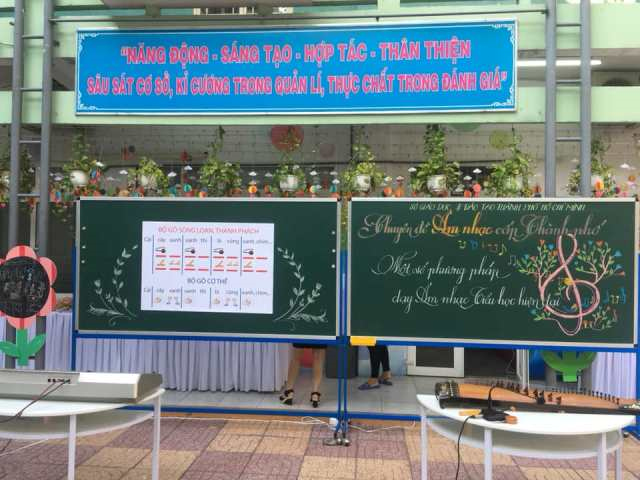 “NĂNG ĐỘNG - SÁNG TẠO - HỢP TÁC - THÂN THIỆN
SÂU SÁT CƠ SỞ, KỈ CƯƠNG TRONG QUẢN LÍ, THỰC CHẤT TRONG ĐÁNH GIÁ”
BỘ GÕ SONG LOAN, THANH PHÁCH
Cái cây xanh xanh thì lá cũng xanh, chim...
BỘ GÕ CƠ THỂ
Cái cây xanh xanh thì lá cũng xanh, chim...
SỞ GIÁO DỤC & ĐÀO TẠO THÀNH PHỐ HỒ CHÍ MINH
Chuyên đề Âm nhạc cấp Thành phố
Một số phương pháp
dạy Âm nhạc Tiểu học hiện đại